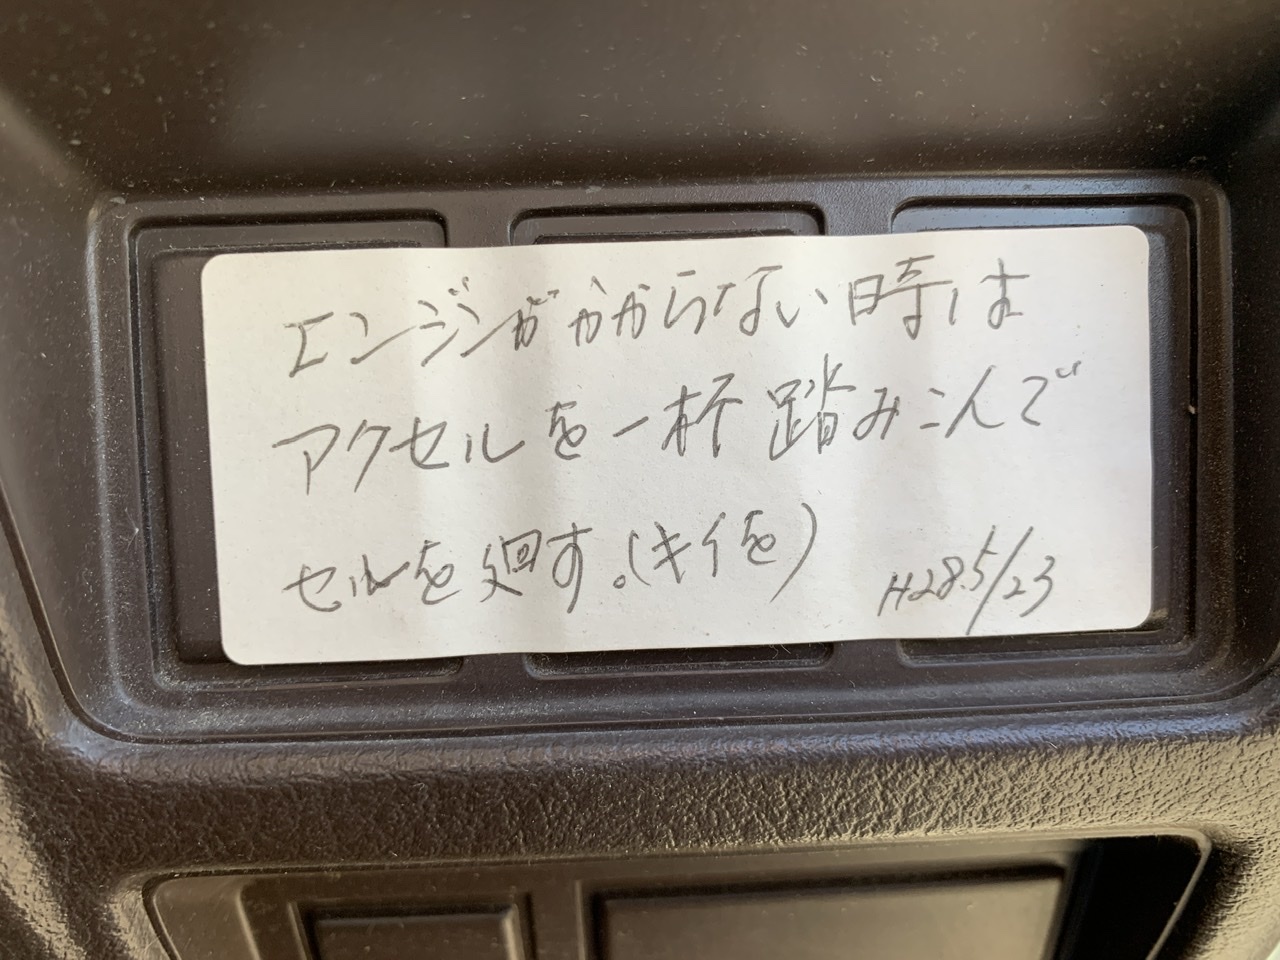 エンジンがかからない時は
アクセルを一杯踏みこんで
セルを廻す。(キイを)
H28.5/23